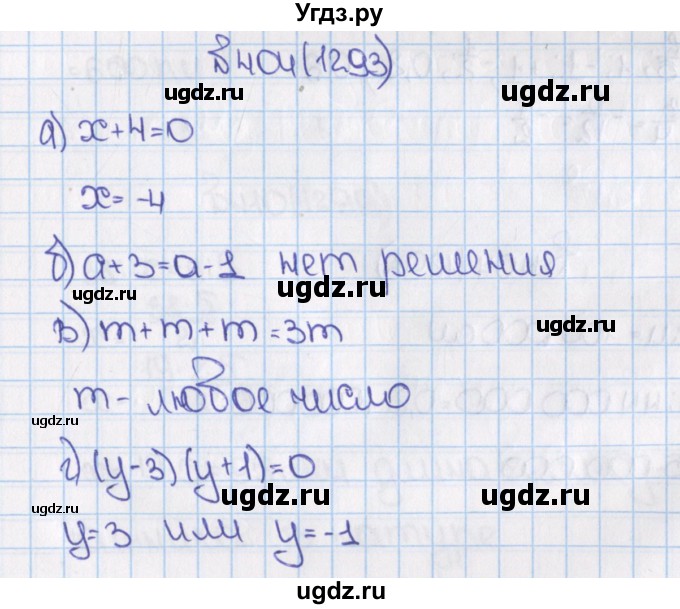 Угдз.ру
№404(1293)
ugdz.ru ugdz.ru
а) x+4=0
x=-4
б) a+3=a-1 нет решения
ugdz.ru ugdz.ru
в) m+m+m=3m
m - любое число
ugdz.ru ugdz.ru
г) (y-3)(y+1)=0
ugdz.ru ugdz.ru
y=3 или y=-1
ugdz.ru